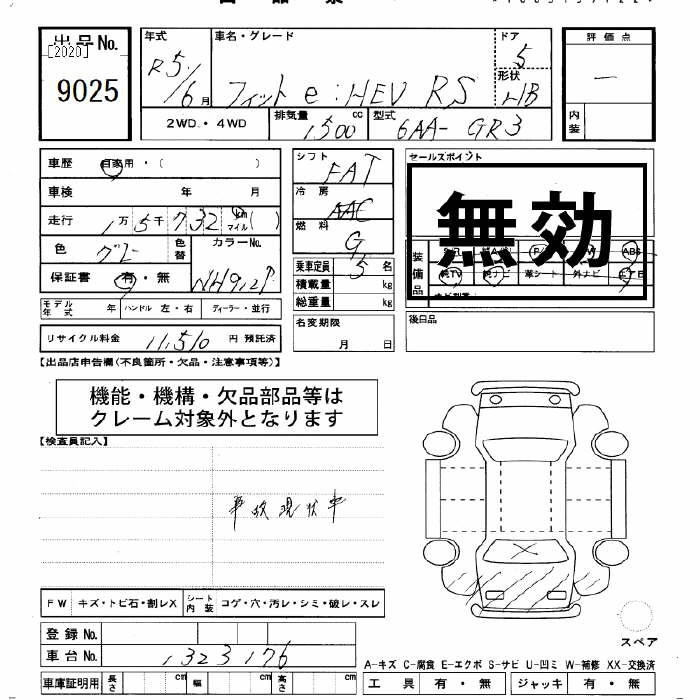 出品No.
[2020]
9025
年式 車名・グレード ドア
R5/6月 フィット e:HEV RS 5
形状 HB
2WD・4WD 排気量 1500 cc 型式 6AA- GR3
評価点
－
内装
車歴 自家用・( )
車検 年 月
走行 1万5千732 km マイル( )
色 グレー 色替 カラーNo.
保証書 有・無
モデル年式 年 ハンドル 左・右 ディーラー・並行
リサイクル料金 11,510 円 預託済
シフト FAT
冷房 AAC
燃料 G
乗車定員 5 名
積載量 kg
総重量 kg
名変期限
月 日
セールスポイント
無効
装備品
ABS
純TV 純ナビ 革シート 外ナビ
後日品
【出品店申告欄(不良箇所・欠品・注意事項等)】
機能・機構・欠品部品等は
クレーム対象外となります
【検査員記入】
事故現状車
FW キズ・トビ石・割レX シート内装 コゲ・穴・汚レ・シミ・破レ・スレ
登録No.
車台No. 1323176
車庫証明用 長さ cm 幅 cm 高さ cm
スペア
A-キズ C-腐食 E-エクボ S-サビ U-凹ミ W-補修 XX-交換済
工具 有・無 ジャッキ 有・無